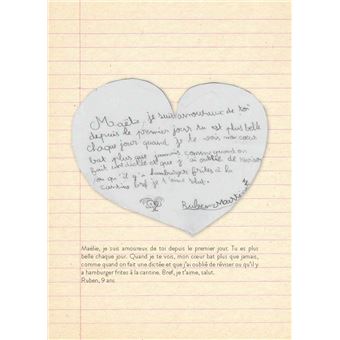 Maëlie, je suis amoureux de toi
depuis le premier jour tu est plus belle
chaque jour quand je te vois mon cœur
bat plus que jamais comme quand on
fait une dictée et que j'ai oublié de
ou qu'il y a hamburger frites à la
cantine bref je t'aime salut.
Ruben
Maëlie, je suis amoureux de toi depuis le premier jour. Tu es plus
belle chaque jour. Quand je te vois, mon cœur bat plus que jamais,
comme quand on fait une dictée et que j'ai oublié de réviser ou qu'il y
a hamburger frites à la cantine. Bref, je t'aime, salut.
Ruben, 9 ans